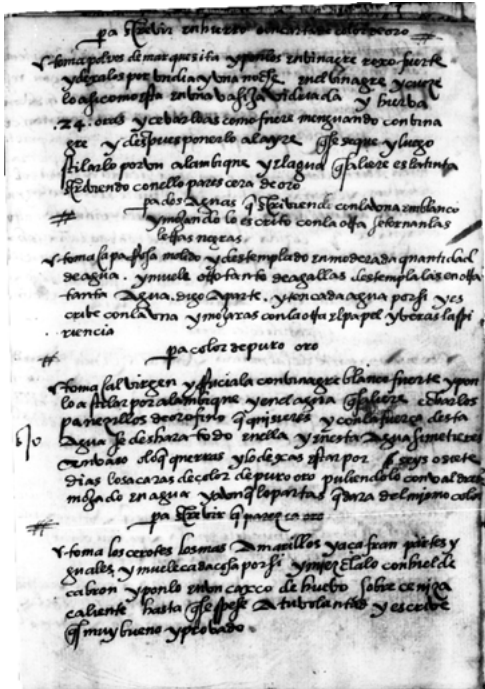 pa escrevir en hierro o en carta de color de oro
toma polvos de marquesita y ponlos en vinagre roxo fuerte
y dexalos por un dia y una noche en el vinagre y cueze
lo asi como esta en una vasija vidriada y hierva
.24. oras y cevar las como fuere menguando con vina
gre y despues ponerlo al ayre q se seque y luego
stilarlo por un alambique y el agua q saliere es la tinta
screviendo con ello parescera de oro
pa dos aguas q screviendo con la una en blanco
y mojando lo escrito con la otra se tornan las
letras negras
toma la molido y destemplado en moderada quantidad
de agua. y muele otro tanto de agallas destempla las en otra
tanta agua, digo aparte. y ten cada agua por si y es
crive con la una y mojaras con la otra el papel y veras la espi
riencia
pa color de puro oro
toma sal virgen y con vinagre blanco fuerte y pon
lo a stilar por alambique y en el agua q saliere echar los
panezillos de oro fino q quisieres y con la fuerça desta
agua se deshara todo en ella y en esta agua si metieres
un vaso o lo q querras y lo dexas estar por seys o siete
dias lo sacaras de color de puro oro puliendolo con
mojado en agua y aun q lo partas quedara del mismo color
pa screvir q paresca oro
toma los cerotes los mas amarillos y açafran partes y
guales, y muele cada cosa por si y mezclalo con hiel de
cabron y ponlo en un casco de huevo sobre ceniza
caliente hasta q se espese a tu voluntad y escrive
q es muy bueno y provado.